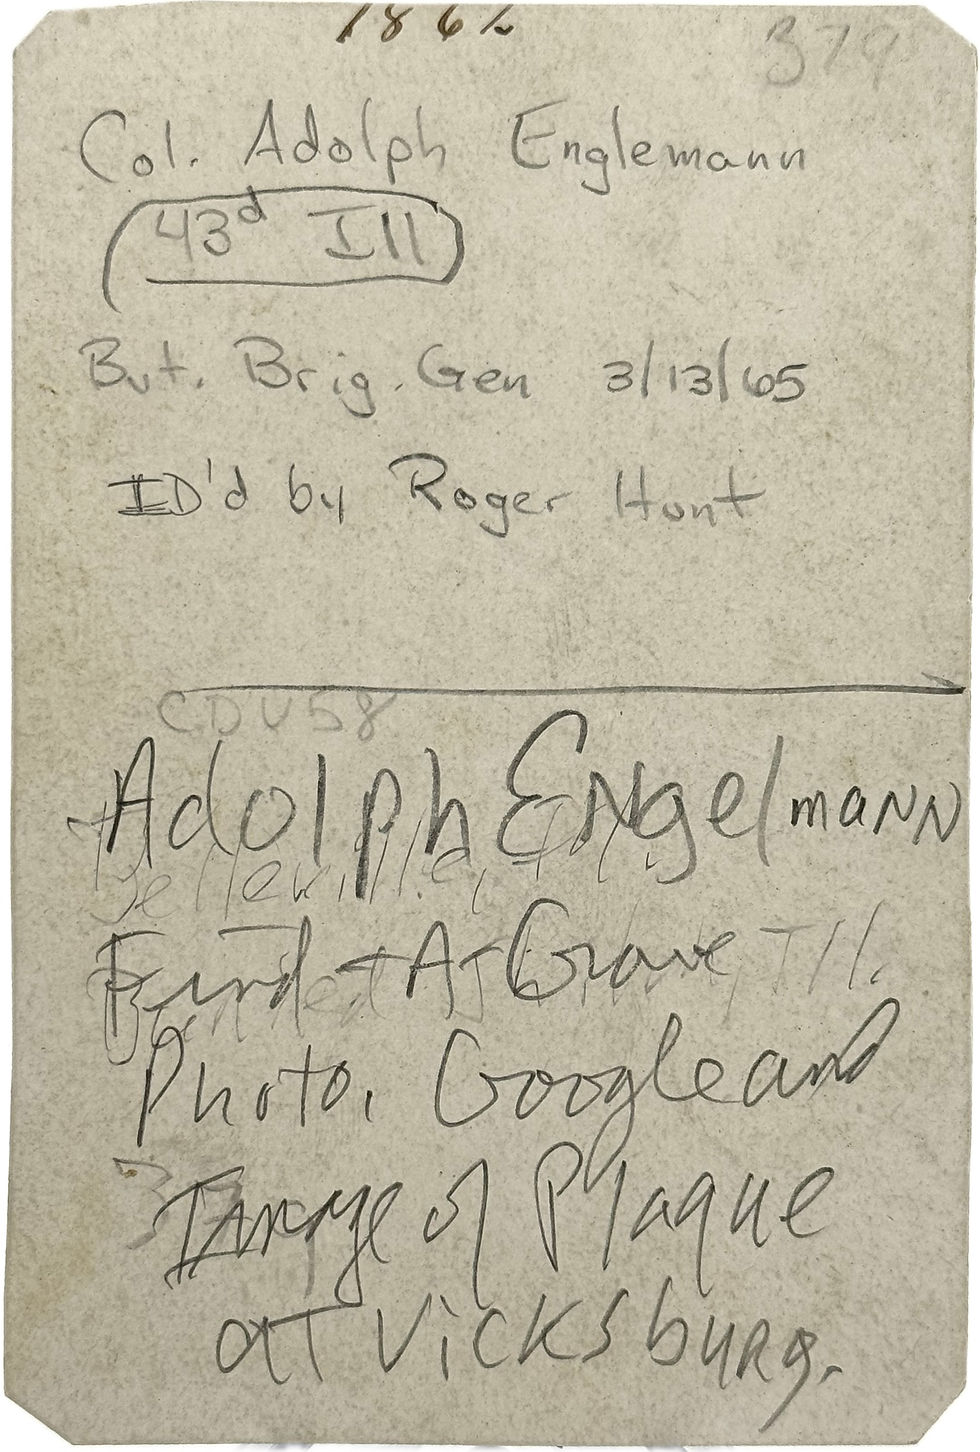 1862
379
Col. Adolph Englemann
43d Ill
Bvt. Brig. Gen 3/13/65
ID'd by Roger Hunt
CDV58
Adolph Engelmann
Belleville, Ill.
Find A Grave Ill.
Photo. Google and
Image of Plaque
at Vicksburg.